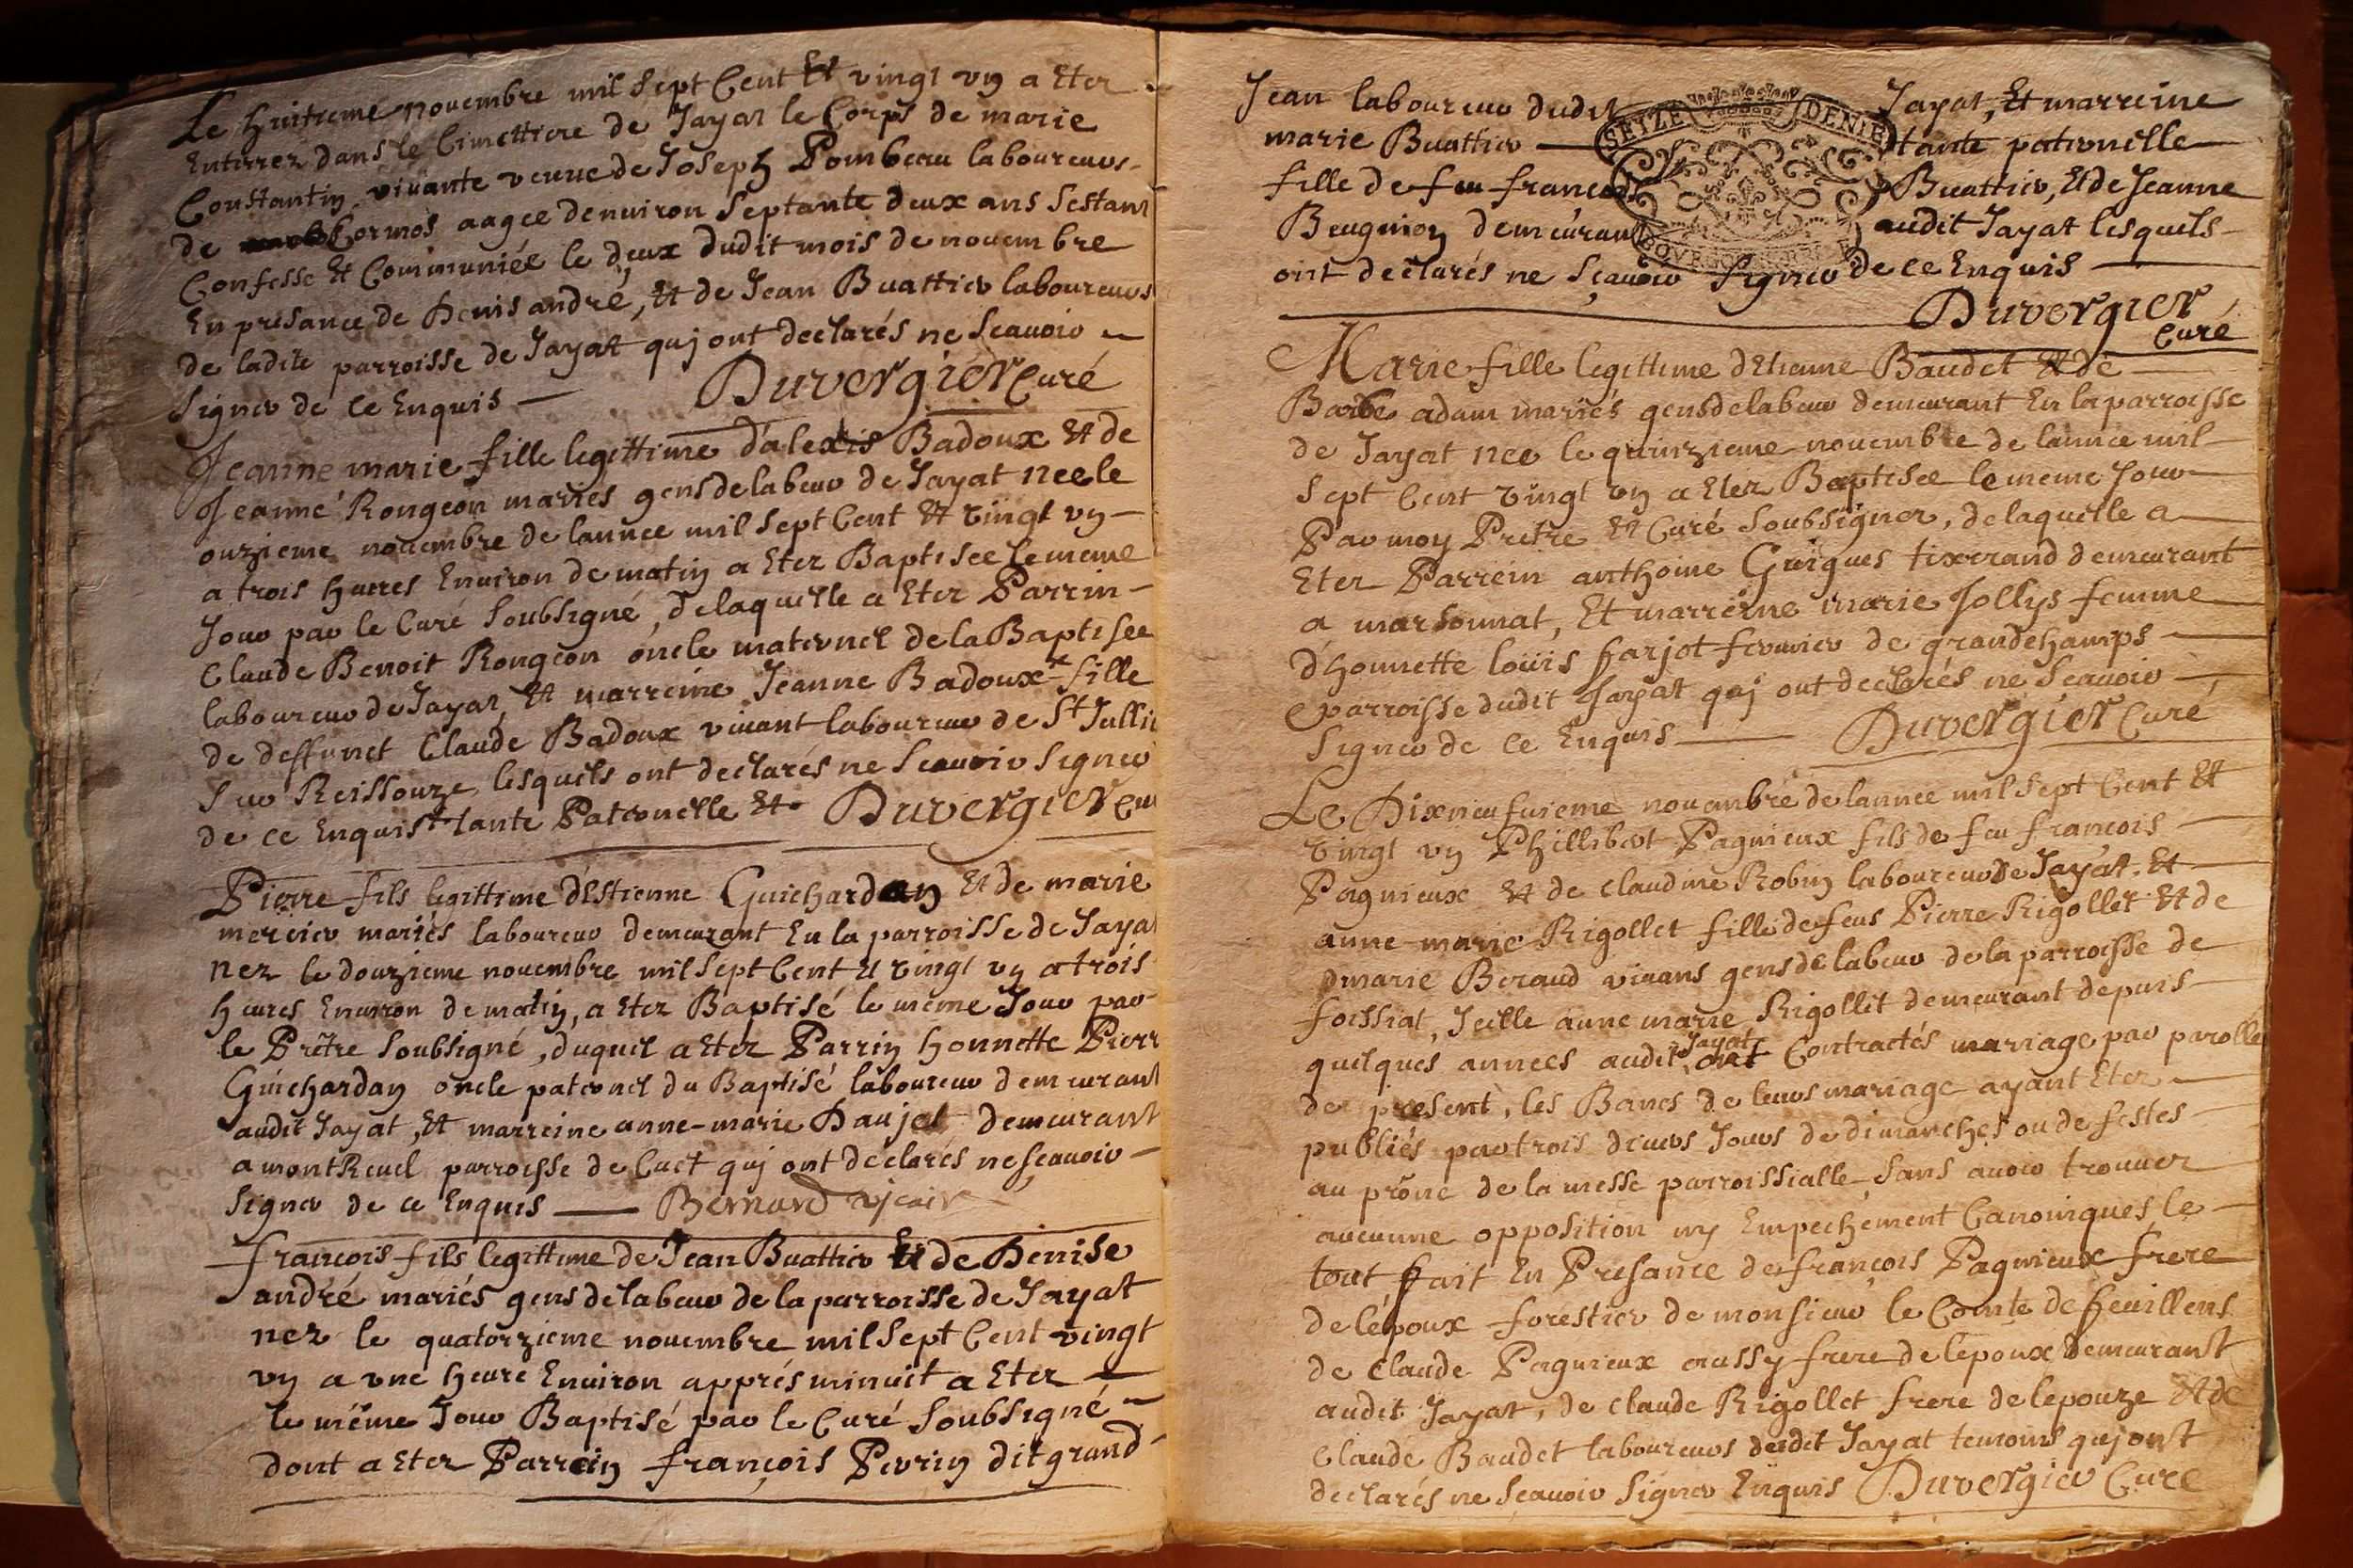 Le huitieme novembre mil sept Cent Et vingt vn a Eter
Enterrez dans le Cimettiere de Jayat le Corps de marie
Constantin vivante veuve de Joseph Pombeau laboureurs
de Cormos aagee denviron Septante deux ans Sestant
Confesse Et Communiée le deux dudit mois de novembre
En presance de Denis andré, Et de Jean Buattier laboureurs
de ladite parroisse de Jayat quj ont declarés ne Scavoir
Signer de ce Enquis Duvergier Curé
Jeanne marie fille legittime d'alexis Badoux Et de
Jeanne Rongeon mariés gens de labeur de Jayat nee le
onzieme novembre de lannee mil Sept Cent Et vingt vn
a trois heures Environ de matin a Eter Baptisee le meme
Jour par le Curé Soubsigné, de laquelle a Eter Parrin
Claude Benoit Rongeon oncle maternel de la Baptisee
laboureur de Jayat, Et marreine Jeanne Badoux fille
de deffunct Claude Badoux vivant laboureur de St Jullie
Sur Reissouze lesquels ont declarés ne Scavoir Signer
de ce Enquis tante Paternelle Et Duvergier Cu
Pierre fils legittime d'Estienne Guichardan Et de marie
mercier mariés laboureur demeurant En la parroisse de Jayat
nez le douzieme novembre mil Sept Cent Et vingt vn a trois
heures Environ de matin, a Eter Baptisé le meme Jour par
le Prêtre Soubsigné, duquel a Eter Parrin honnette Pierr
Guichardan oncle paternel du Baptisé laboureur demeurant
audit Jayat, Et marreine anne-marie Daujat demeurant
a montReuel parroisse de Cuet quj ont declarés ne scavoir
Signer de ce Enquis Bernard vicair
françois fils legittime de Jean Buattier Et de Denise
andré mariés gens de labeur de la parroisse de Jayat
nez le quatorzieme novembre mil Sept Cent vingt
vn a vne heure Environ apprés minuit a Eter
le même Jour Baptisé par le Curé Soubsigné
dont a Eter Parrein françois Pevrin dit grand
Jean laboureur dudit Jayat, Et marreine
marie Buattier tante paternelle
fille de feu francois Buattier, Et de Jeanne
Beugnion demeurant audit Jayat lesquels
ont declarés ne Sçavoir Signer de ce Enquis
SEIZE DENIE
Duvergier
Curé
Marie fille legittime dEtienne Baudet Et de
Barbe adam mariés gens de labeur demeurant En la parroisse
de Jayat nee le quinzieme novembre de lannee mil
Sept Cent vingt vn a Eter Baptisee le meme Jour
Par moy Prêtre Et Curé Soubsigner, de laquelle a
Eter Parrein anthoine Guigues tixerand demeurant
a marsonnat, Et marreine marie Jollys femme
d'honnette loüis harjot fermier de grandchamps
parroisse dudit Jayat quj ont declarés ne Scavoir
Signer de ce Enquis Duvergier Curé
Le Dixneufvieme novembre de lannee mil Sept Cent Et
vingt vn Phillibert Pagnieux fils de feu francois
Pagnieux Et de claudine Robin laboureur de Jayat. Et
anne-marie Rigollet fille de feus Pierre Rigollet Et de
marie Beraud vivans gens de labeur de la parroisse de
foissiat, Icelle anne marie Rigollet demeurant depuis
Jayat
quelques annees audit, ont Contractés mariage par parolle
de present, les Bancs de leurs mariage ayant Eter
publiés par trois divers Jours de dimanches ou de festes
au prône de la messe parroissialle, Sans avoir trouver
aucunne opposition ny Empechement Canonniques, le
tout fait En Presance de françois Pagnieux frere
de lépoux forestier de monsieur le Comte de feuillens
de Claude Pagnieux aussy frere de lépoux demeurant
audit Jayat, de claude Rigollet frere de lepouze Et de
Claude Baudet laboureurs dudit Jayat temoins quj ont
declarés ne Scavoir Signer Enquis Duvergier Curé